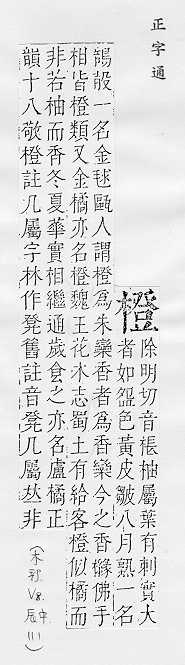 正字通
橙
除明切音棖柚屬葉有刺實大
者如盌色黃皮皺八月熟一名
鵠殼一名金毬甌人謂橙爲朱欒香者爲香欒今之香櫞佛手
相皆橙類又金橘亦名橙魏王花木志蜀土有給客橙似橘而
非若柚而香冬夏華實相繼通歲食之亦名盧橘正
韻十八敬橙註几屬字林作凳舊註音凳几屬𠀤非
(木部
V8.
辰中